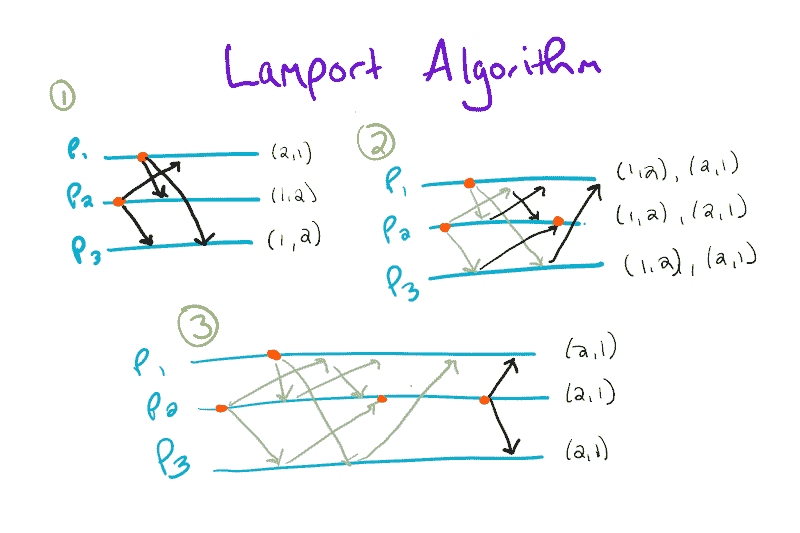 Lamport Algorithm
1
P1 (2,1)
P2 (1,2)
P3 (1,2)
2
P1 (1,2), (2,1)
P2 (1,2), (2,1)
P3 (1,2), (2,1)
3
P1 (2,1)
P2 (2,1)
P3 (2,1)